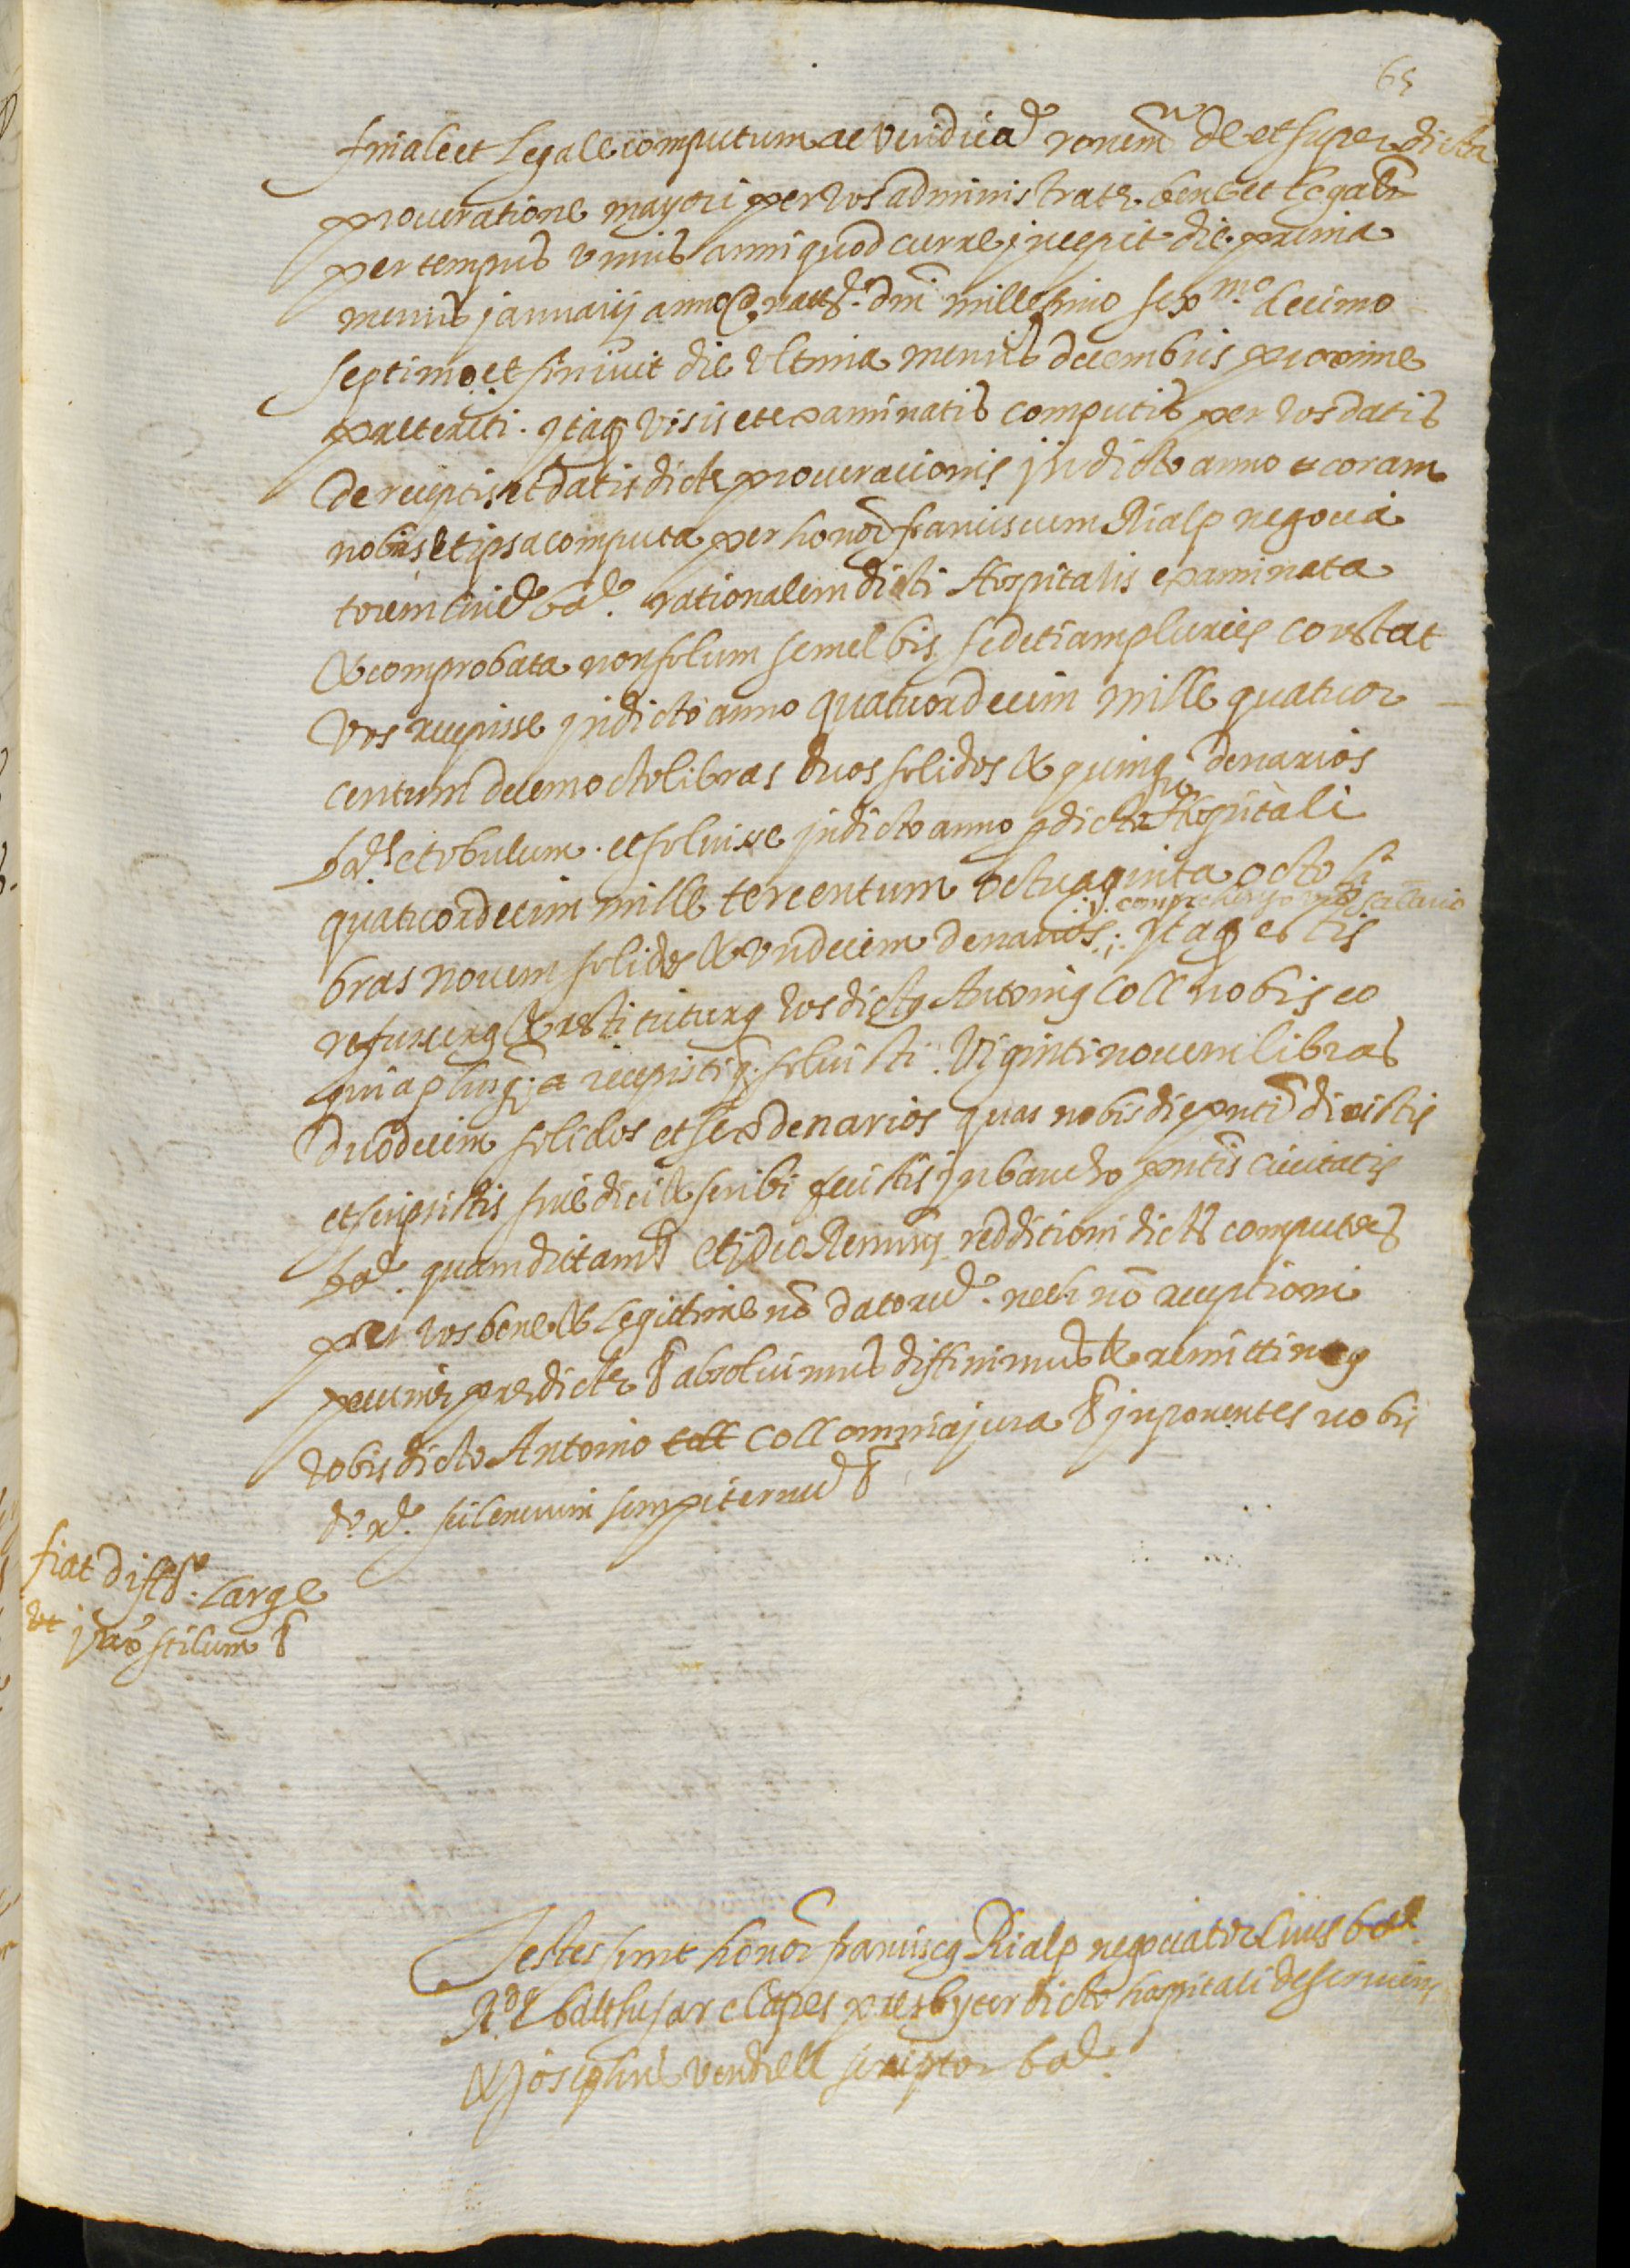 65
finale et Legale computum ac veridica ronem de et super dicta
procuratione mayori per vos administrata bene et legalr
per tempus unius anni quod currere jncepit die prima
mensis januarij anno a natte dni millesimo sexmo decimo
septimo et finivit die vltima mensis decembris proxime
preteriti. jtaq visis et examinatis computis per vos datis
de receptis et datis dicte procuracionis jn dicto anno & coram
nobis et ipsa computa per honor franciscum Rialp negocia
torem civem bar. rationalem dicti Hospitalis examinata
& comprobata non solum semel bis sed etiam pluries constat
vos recepisse jn dicto anno quatuordecim mille quatuor
centum decem octo libras duos solidos & quinq denarios
bar. et obulum. et solvisse jn dicto anno pro dicto Hospitali
quatuordecim mille tercentum octuaginta octo li
bras novem solidos & undecim denarios: jtaq estis
comprehenso vro salario
refusurus & restituturus vos dictus Antonius Coll nobis eo
quia plus recepistis q. solvisti. Viginti novem libras
duodecim solidos et sex denarios quas nobis die pnti dixistis
et scripsistis sive dici & scribi fecistis jn bancho pntis civitatis
bar. quam dictam & Et jdeo Renuns redditioni dicti computus
per vos bene & legittime no dator. nech no receptioni
pecunie predicte & absolvimus diffinimus & remittimus
vobis dicto Antonio coll Coll omnia jura & jnponentes nobis
d. r. silencium sempiternu &
fiat diffo. Large
vt juxta stilum &
Testes sunt honor franciscus Rialp negociator civis bar.
Rdus balthesar clapes presbyter dicto hospitali deserviens
& josephus vendrell scriptor bar.